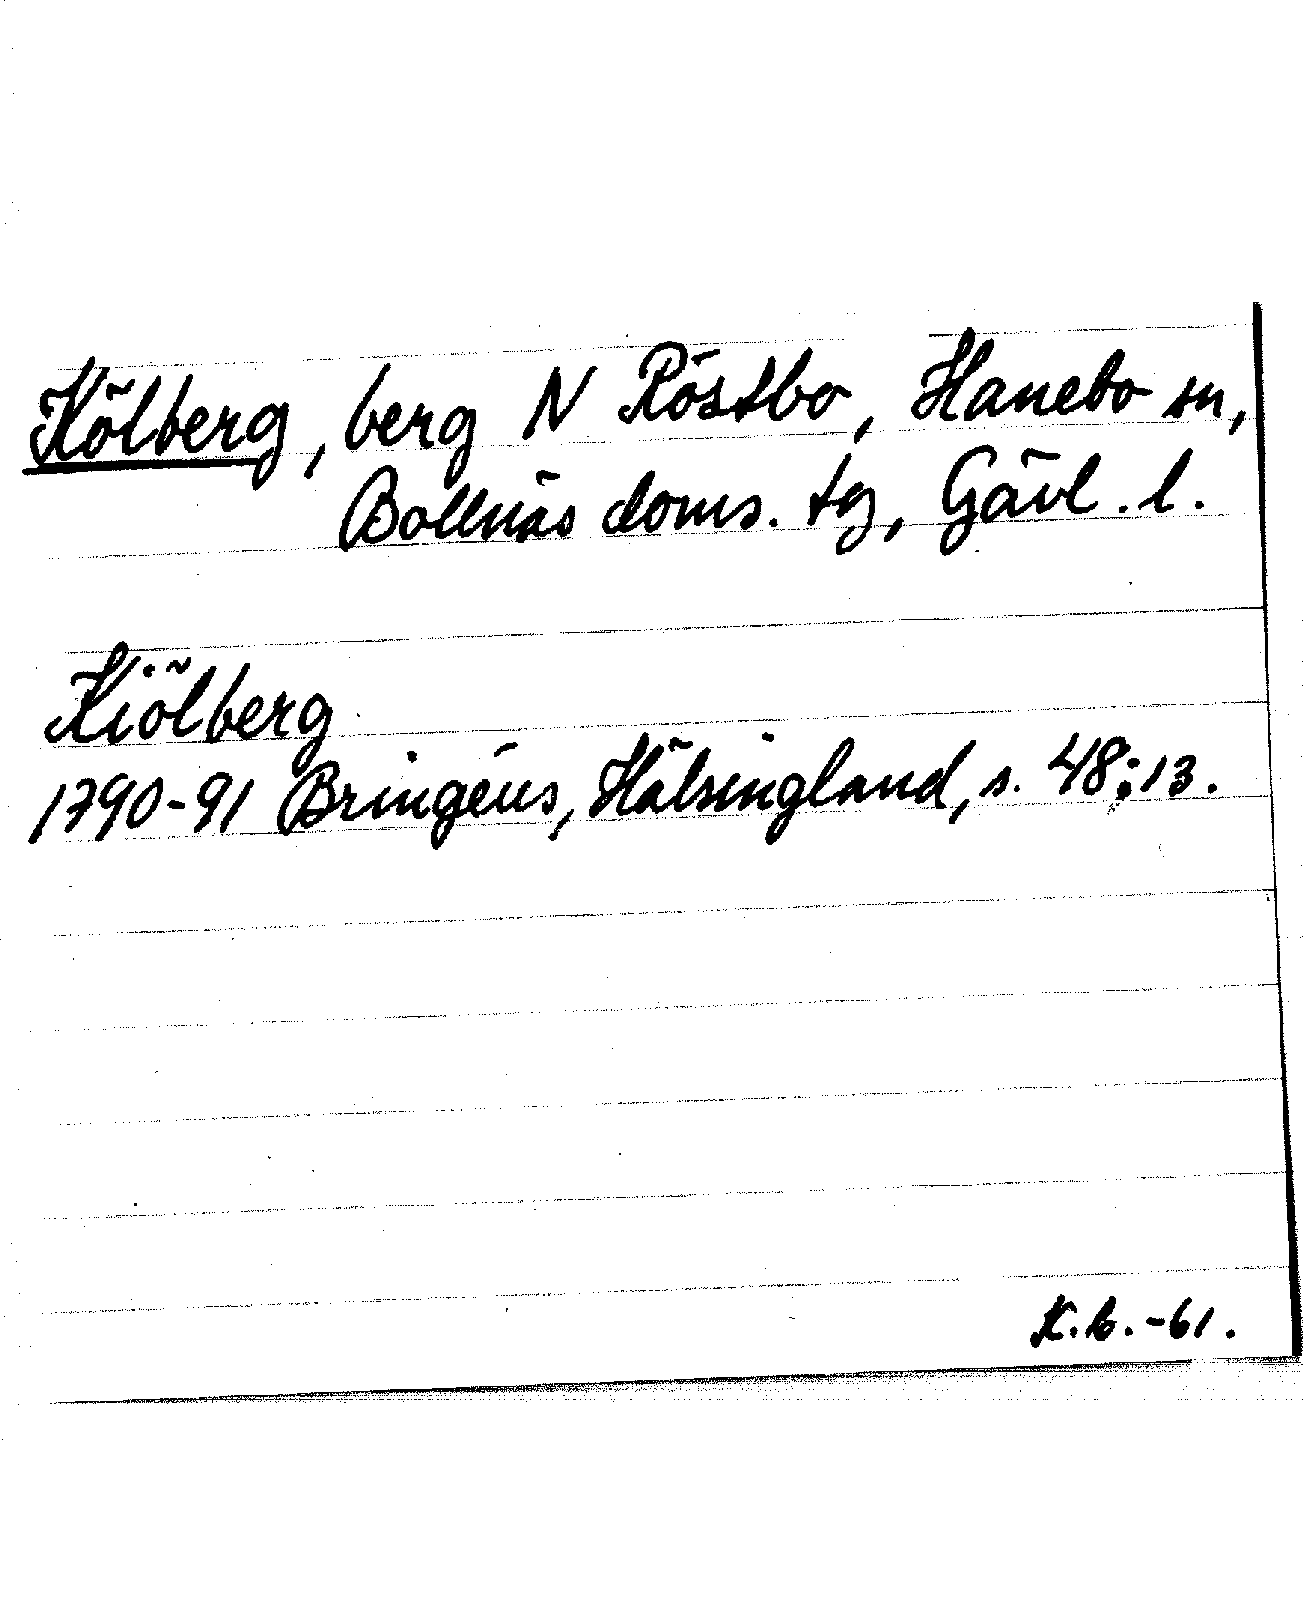 Kölberg, berg N Röstbo, Hanebo sn,
Bollnäs doms. tg, Gävl. l.
Kiölberg
1790-91 Bringéus, Hälsingland, s. 48:13.
K.b.-61.